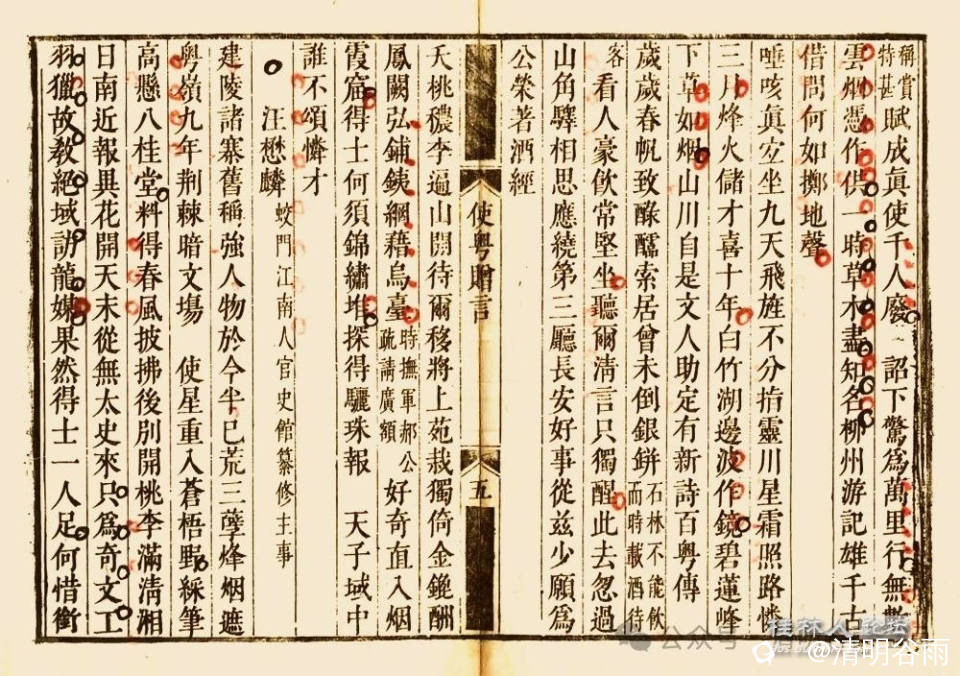 稱賞特甚賦成眞使千人廢 詔下驚爲萬里行無數
雲烟憑作供一時草木盡知名柳州游記雄千古
借問何如擲地聲
唾咳眞宐坐九天飛旌不分指靈川星霜照路憐
三月烽火儲才喜十年白竹湖邊波作鏡碧蓮峰
下草如烟山川自是文人助定有新詩百粤傳
歲歲春帆致醁醽索居曾未倒銀鉼石林不能飲而時載酒待
客 看人豪飲常堅坐聽爾清言只獨醒此去忽過
山角驛相思應繞第三廳長安好事從兹少願爲
公榮著酒經
使粤贈言 五
夭桃穠李逼山開待爾移將上苑栽獨倚金鎞酬
鳳闕弘鋪鐵網藉烏臺時撫軍郝公疏請廣額好奇直入烟
霞窟得士何須錦繡堆探得驪珠報 天子域中
誰不頌憐才
汪懋麟 蛟門江南人官史館纂修主事
建陵諸寨舊稱強人物於今半已荒三孽烽烟遮
粤嶺九年荆棘暗文塲 使星重入蒼梧野綵筆
高懸八桂堂料得春風披拂後別開桃李滿淸湘
日南近報異花開天末從無太史來只爲奇文工
羽獵故敎絕域訪龍媒果然得士一人足何惜衝
公众号
桂林人论坛
@清明谷雨